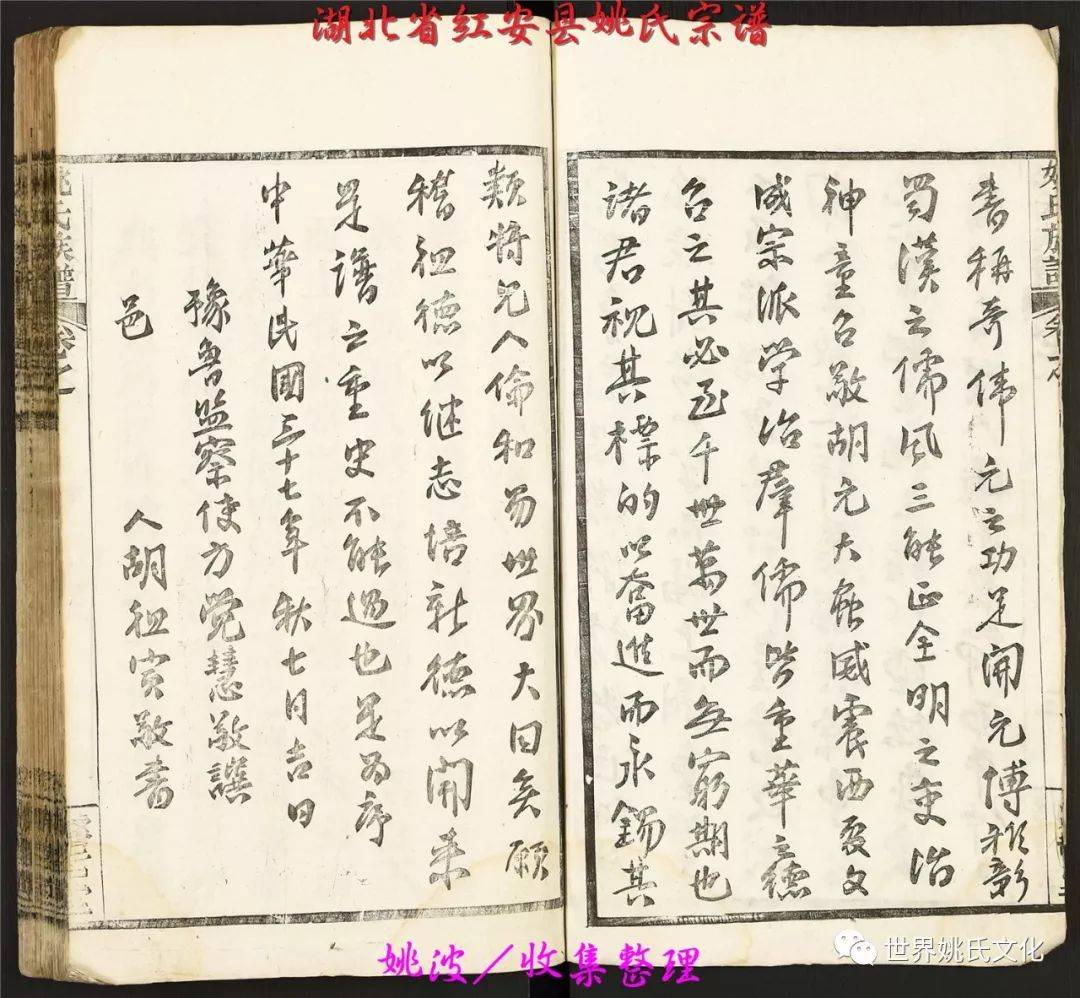 湖北省红安县姚氏宗谱
書稱奇偉元之功足開元博雅彰
蜀漢之儒風三能正全明之吏治
神童召敬胡元大無威震西夏文
咸宗派学冶羣儒皆重華之德
召之其必至千世萬世而無窮期也
諸君視其標的以奮進而永錫其
類將見人倫和而世界大同矣願
稽祖德以继志培新德以開来
是譜之重史不能過也是為序
中華民國三十七年秋七月吉日
豫魯监察使方覺慧敬譔
邑人胡祖寅敬書
姚氏族譜
卷之
姚氏族譜
姚波／收集整理
世界姚氏文化